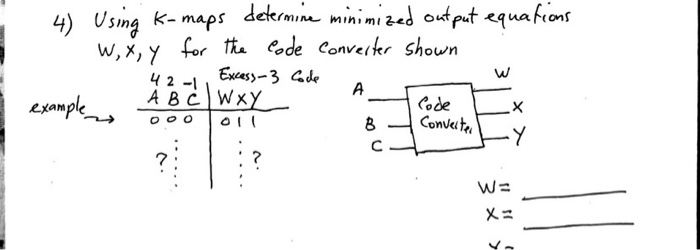 4) Using K-maps determine minimized output equations
W, X, Y for the Code Converter shown
4 2 -1 Excess-3 Code
A B C W X Y
example 0 0 0 0 1 1
? ?
A
B
C
Code
Converter
W
X
Y
W =
X =